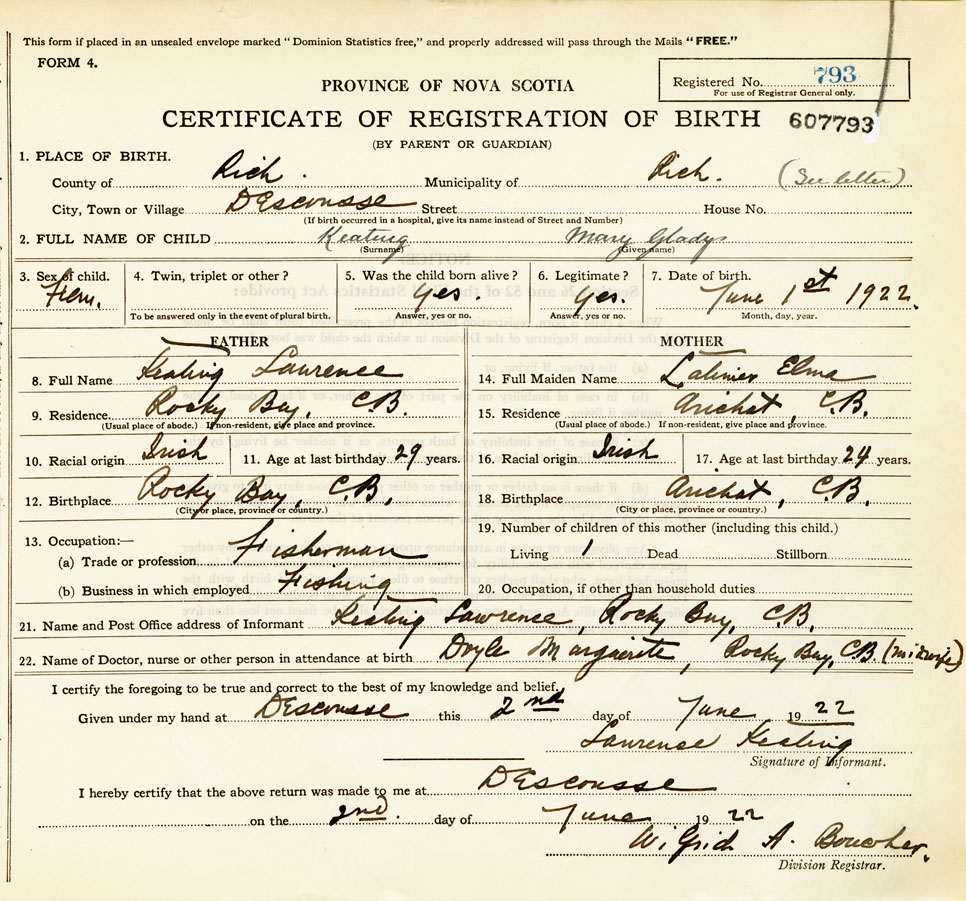 This form if placed in an unsealed envelope marked "Dominion Statistics free," and properly addressed will pass through the Mails "FREE."
FORM 4.
Registered No. 793
For use of Registrar General only.
PROVINCE OF NOVA SCOTIA
CERTIFICATE OF REGISTRATION OF BIRTH 607793
(BY PARENT OR GUARDIAN)
1. PLACE OF BIRTH.
County of Rich. Municipality of Rich. (See letter)
City, Town or Village DEscousse Street House No.
(If birth occurred in a hospital, give its name instead of Street and Number)
2. FULL NAME OF CHILD Keating Mary Gladys
(Surname) (Given name)
3. Sex of child. 4. Twin, triplet or other? 5. Was the child born alive? 6. Legitimate? 7. Date of birth.
Fem. Yes. Yes. June 1st 1922.
To be answered only in the event of plural birth. Answer, yes or no. Answer, yes or no. Month, day, year.
FATHER MOTHER
8. Full Name Keating Lawrence 14. Full Maiden Name Latimer Elma
9. Residence Rocky Bay, C.B. 15. Residence Arichat, C.B.
(Usual place of abode.) If non-resident, give place and province. (Usual place of abode.) If non-resident, give place and province.
10. Racial origin Irish 11. Age at last birthday 29 years. 16. Racial origin Irish 17. Age at last birthday 24 years.
12. Birthplace Rocky Bay, C.B. 18. Birthplace Arichat, C.B.
(City or place, province or country.) (City or place, province or country.)
13. Occupation:— 19. Number of children of this mother (including this child.)
(a) Trade or profession Fisherman Living 1 Dead Stillborn
(b) Business in which employed Fishing 20. Occupation, if other than household duties
21. Name and Post Office address of Informant Keating Lawrence, Rocky Bay, C.B.
22. Name of Doctor, nurse or other person in attendance at birth Doyle Marguerite, Rocky Bay, C.B. (midwife)
I certify the foregoing to be true and correct to the best of my knowledge and belief.
Given under my hand at DEscousse this 2nd day of June 1922
Lawrence Keating
Signature of Informant.
I hereby certify that the above return was made to me at DEscousse
on the 2nd. day of June 1922
Wilfrid A. Boucher.
Division Registrar.